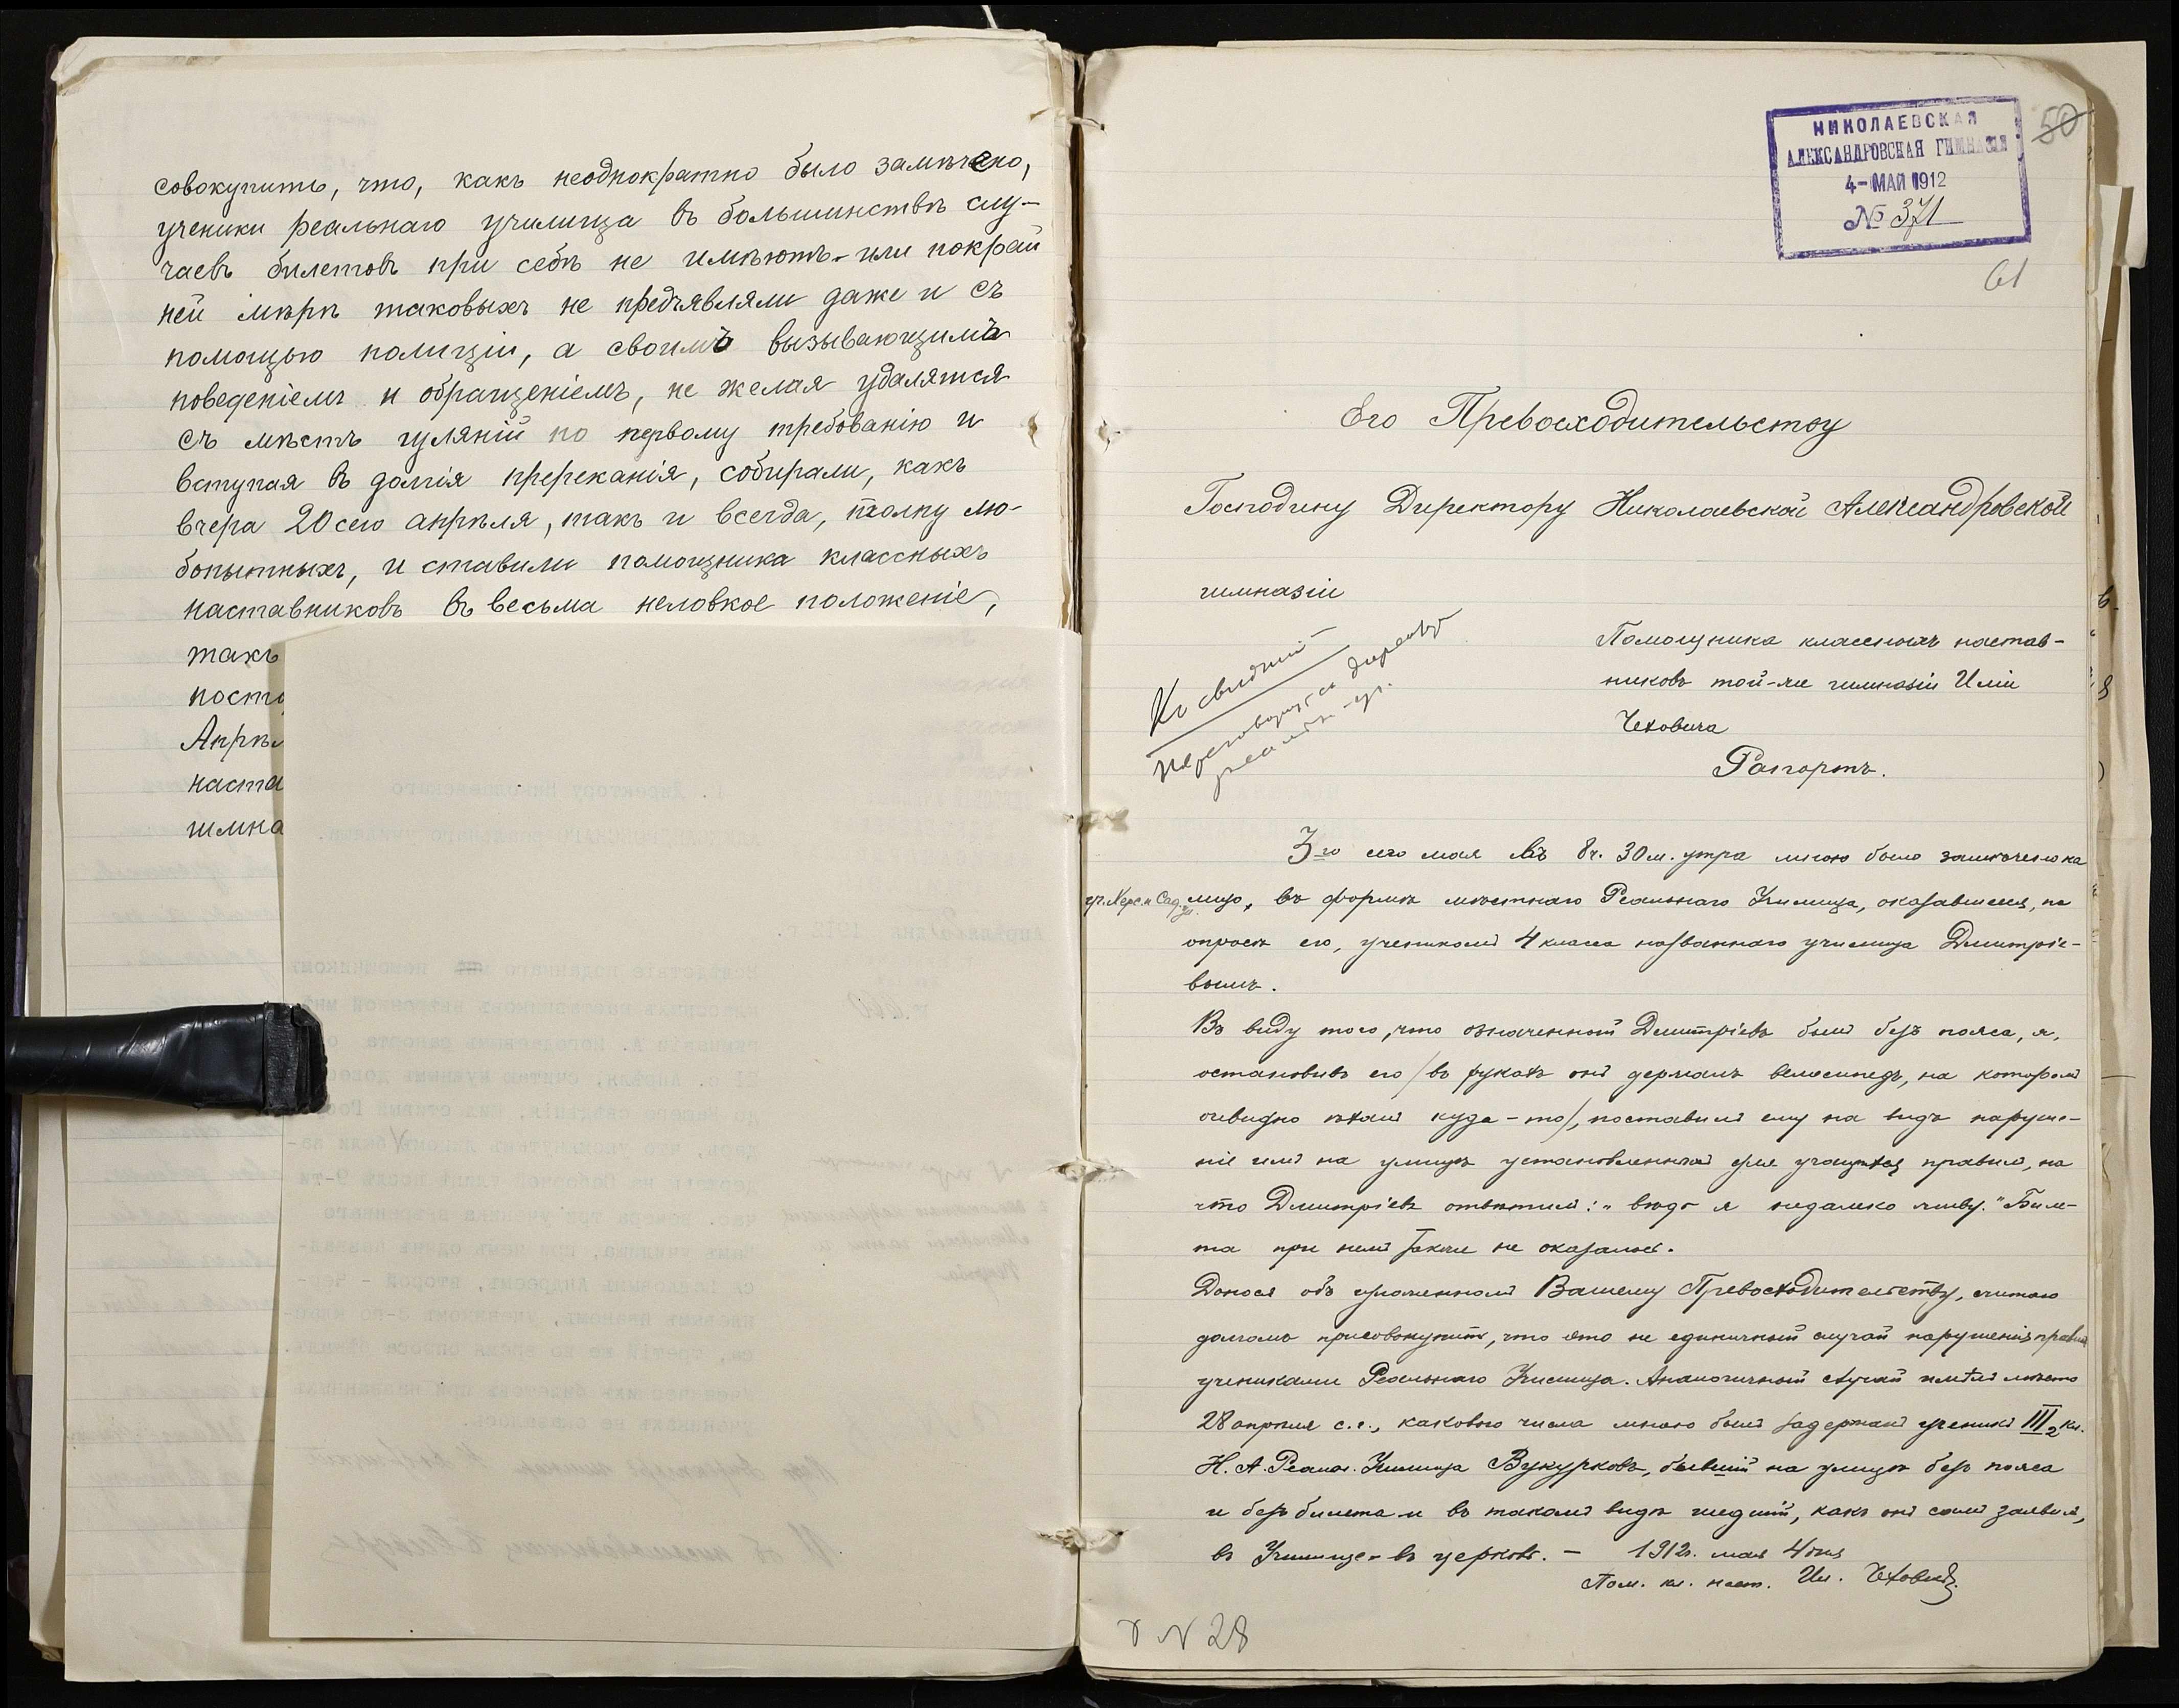 совокупить, что, какъ неоднократно было замѣчено,
ученики реальнаго училища въ большинствѣ слу-
чаевъ билетовъ при себѣ не имѣютъ – или покрай
ней мѣрѣ таковыхъ не предъявляли даже и съ
помощью полиціи, а своимъ вызывающимъ
поведеніемъ и обращеніемъ, не желая удалятся
съ мѣстъ гуляній по первому требованію и
вступая въ долгія пререканія, собирали, какъ
вчера 20 сего апрѣля, такъ и всегда, толпу лю-
бопытныхъ, и ставили помощника классныхъ
наставниковъ въ весьма неловкое положеніе,
такъ
посто
Апрѣл
наста
гимна
НИКОЛАЕВСКАЯ
АЛЕКСАНДРОВСКАЯ ГИМНАЗІЯ
4 – МАЙ 1912
№ 371
50
61
Его Превосходительству
Господину Директору Николаевской Александровской
гимназіи
Помощника классныхъ настав-
никовъ той-же гимназіи Иліи
Чеховича
Рапортъ.
Къ свѣдѣнію
переговорить съ директ.
реальн. уч.
3-го сего мая въ 8 ч. 30 м. утра мною было замѣчено на
лицо, въ формѣ мѣстнаго Реальнаго Училища, оказавшееся, по
опросѣ его, ученикомъ 4 класса названнаго училища Дмитріе-
вымъ.
Въ виду того, что означенный Дмитріевъ былъ безъ пояса, я,
остановивъ его /въ рукахъ онъ держалъ велосипедъ, на которомъ
очевидно ѣхалъ куда-то/, поставилъ ему на видъ наруше-
ніе имъ на улицѣ установленныхъ для учащихся правилъ, на
что Дмитріевъ отвѣтилъ: „вѣдь я недалеко живу." Биле-
та при немъ также не оказалось.
Донося объ изложенномъ Вашему Превосходительству, считаю
долгомъ присовокупить, что это не единичный случай нарушенія правилъ
учениками Реальнаго Училища. Аналогичный случай имѣлъ мѣсто
28 апрѣля с.г., каковаго числа мною былъ задержанъ ученикъ III₂ кл.
Н. А. Реальн. Училища Вукурковъ, бывшій на улицѣ безъ пояса
и безъ билета и въ такомъ видѣ шедшій, какъ онъ самъ заявилъ,
въ Училище – въ церковь. – 1912 г. мая 4 дня
Пом. кл. наст. Ил. Чеховичъ.
№ 28